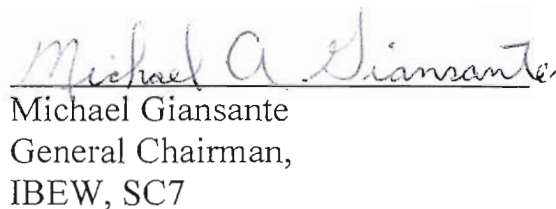 Michael A Giansante
Michael Giansante
General Chairman,
IBEW, SC7